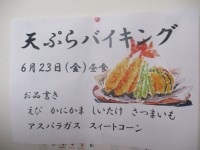 天ぷらバイキング
6月23日(金)昼食
お品書き
えび かにかま しいたけ さつまいも
アスパラガス スイートコーン